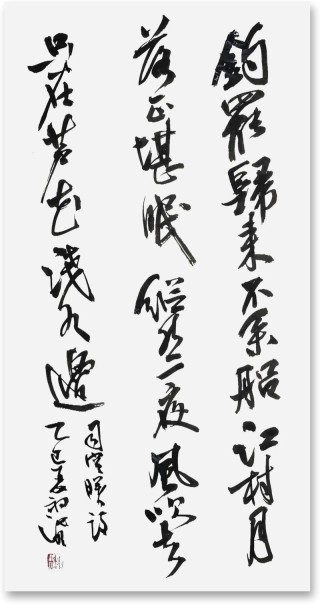 釣罷歸来不系船江村月
落正堪眠縱然一夜風吹去
只在芦花淺水邊
司空曙詩
乙巳春初